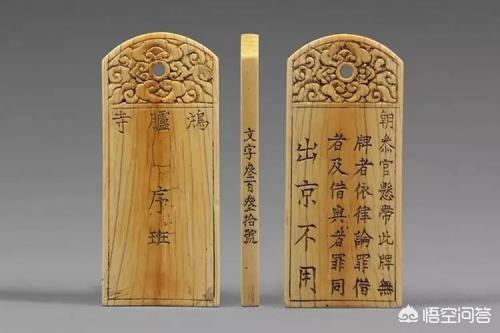 鴻臚寺
序班
文字叄百叄拾號
朝叅官懸帶此牌無
牌者依律論罪借
者及借與者罪同
出京不用
悟空问答